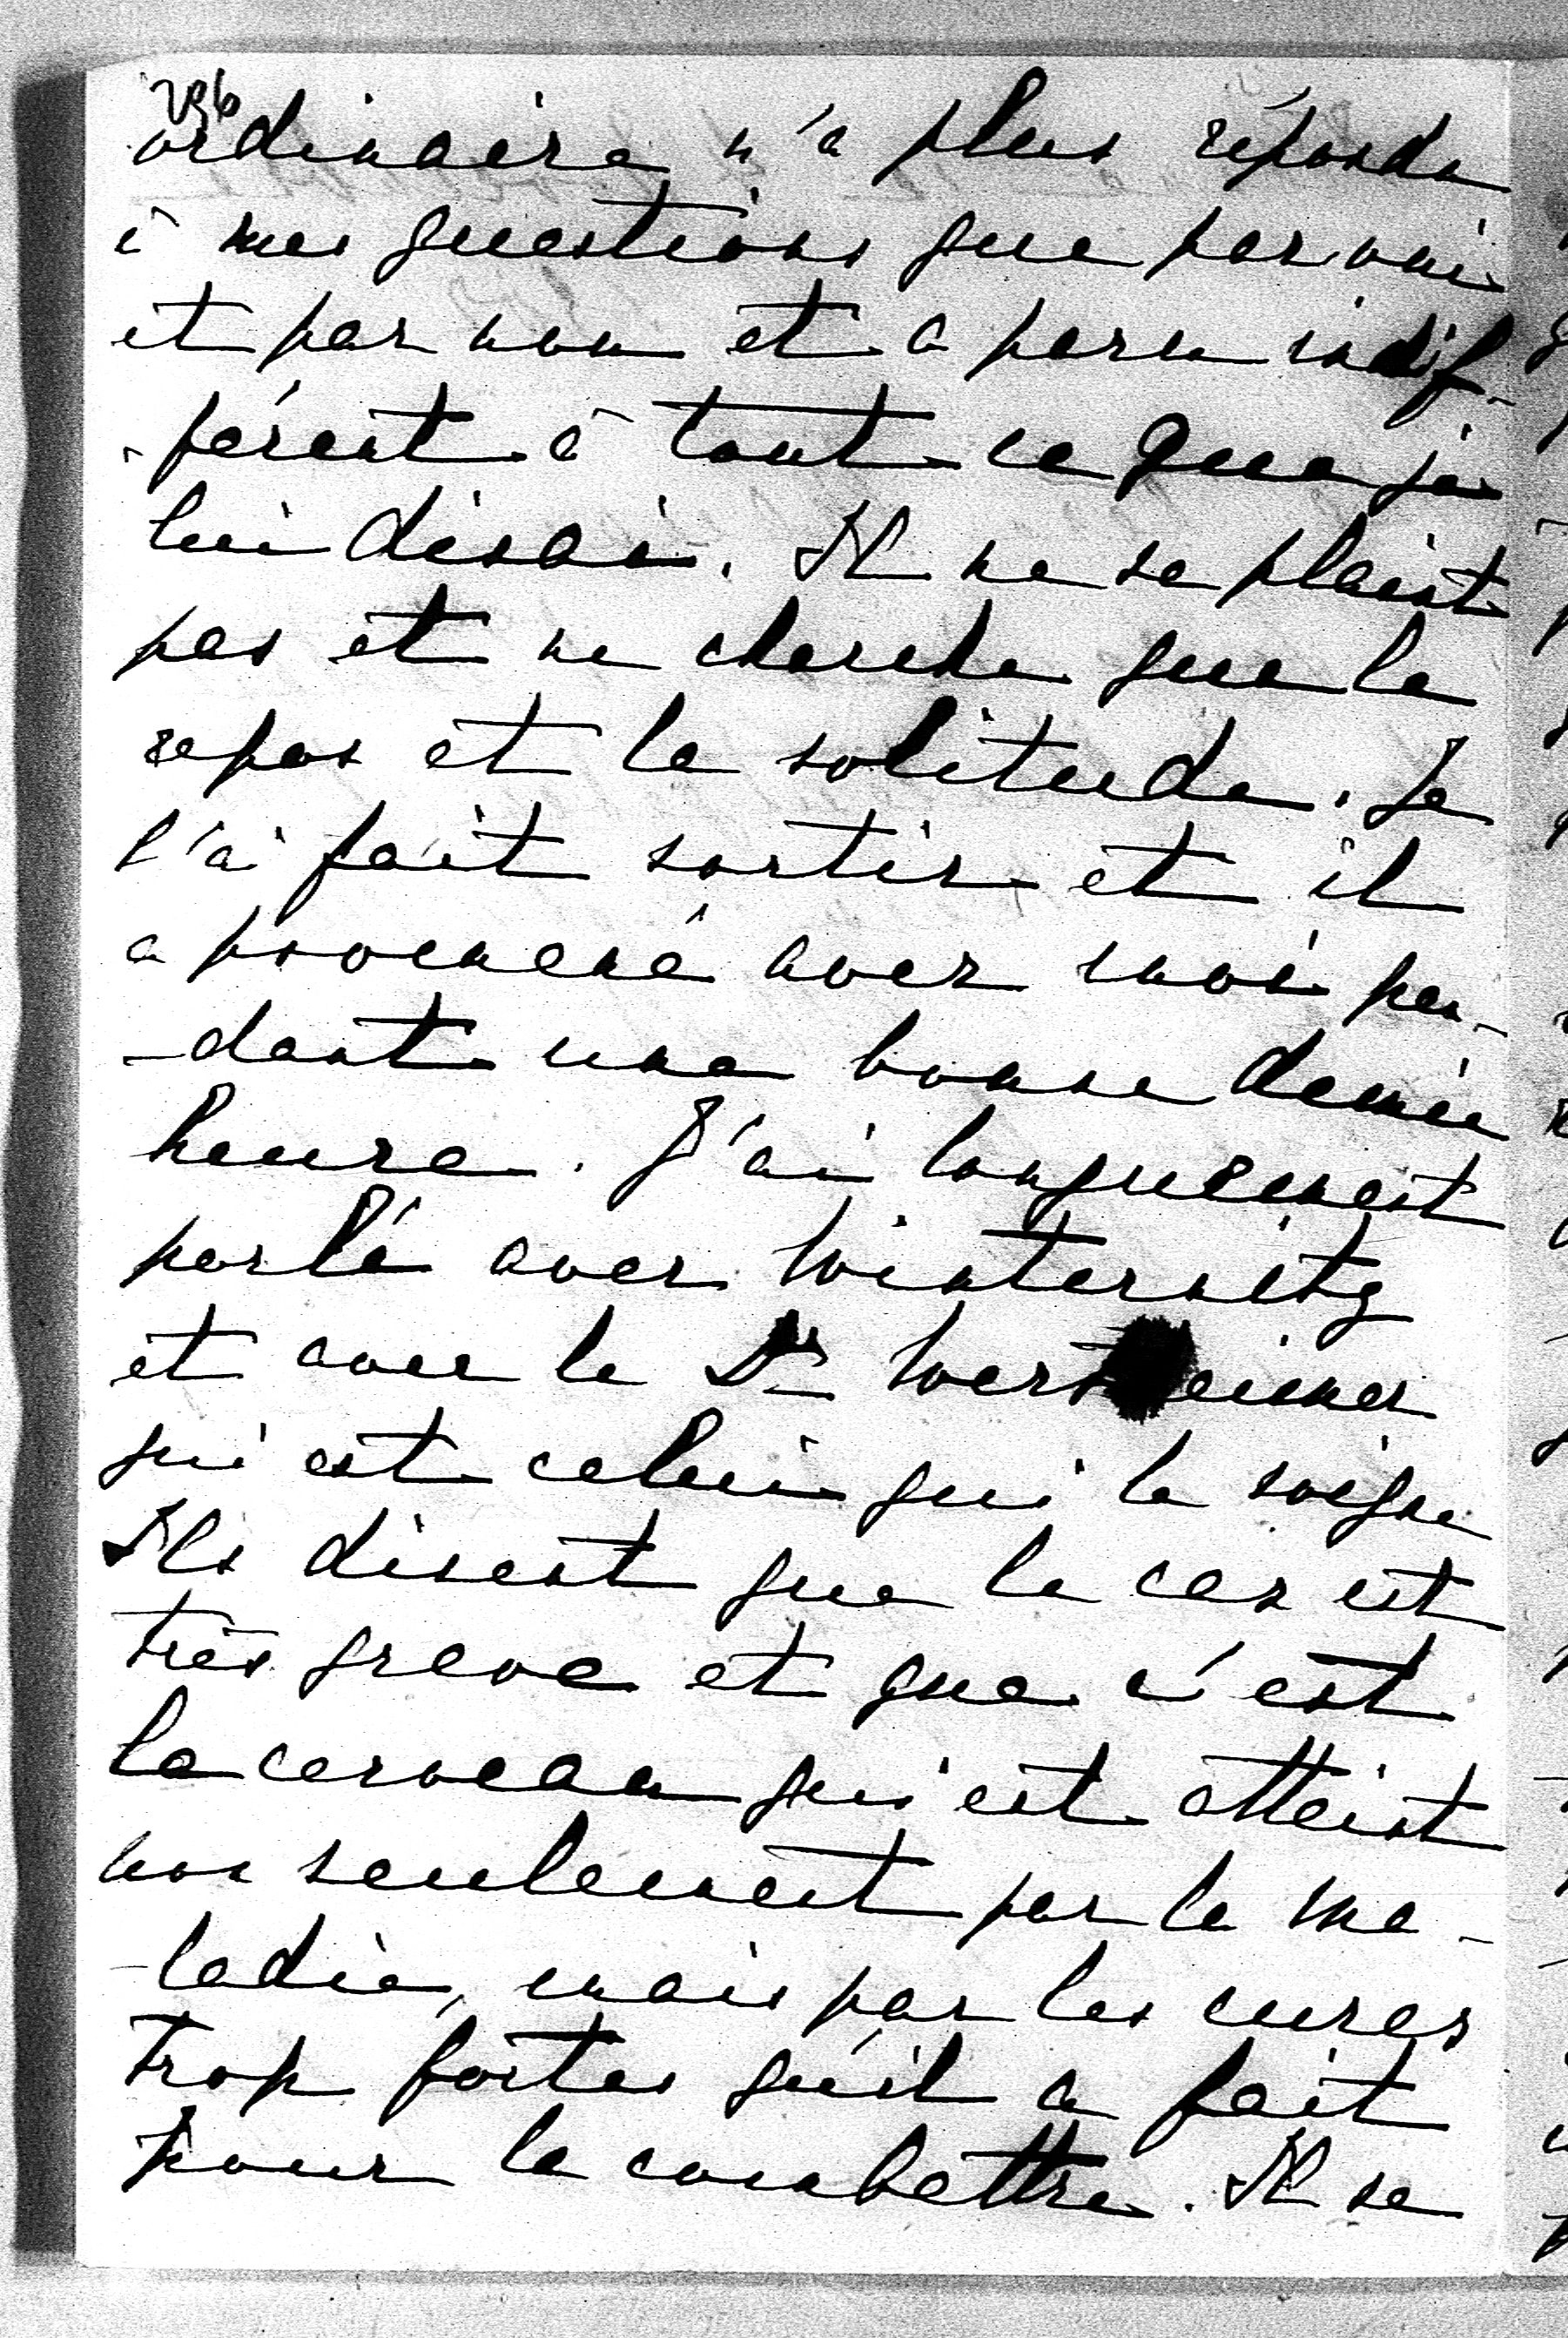 236
ordinaire, n'a plus répondu
à mes questions que par oui
et par non et a paru indif-
-férent à tout ce que je
lui disai. Il ne se plaint
pas et ne cherche que le
repos et la solitude. Je
l'ai fait sortir et il
a promené avec moi pen-
-dant une bonne demie
heure. J'ai longuement
parlé avec Winternitz
et avec le Dr Wertheimer
qui est celui qui le soigne
Ils disent que le cas est
très grave et que c'est
le cerveau qui est atteint
non seulement par la ma-
-ladie, mais par les cures
trop fortes qu'il a fait
pour la combattre. Il se